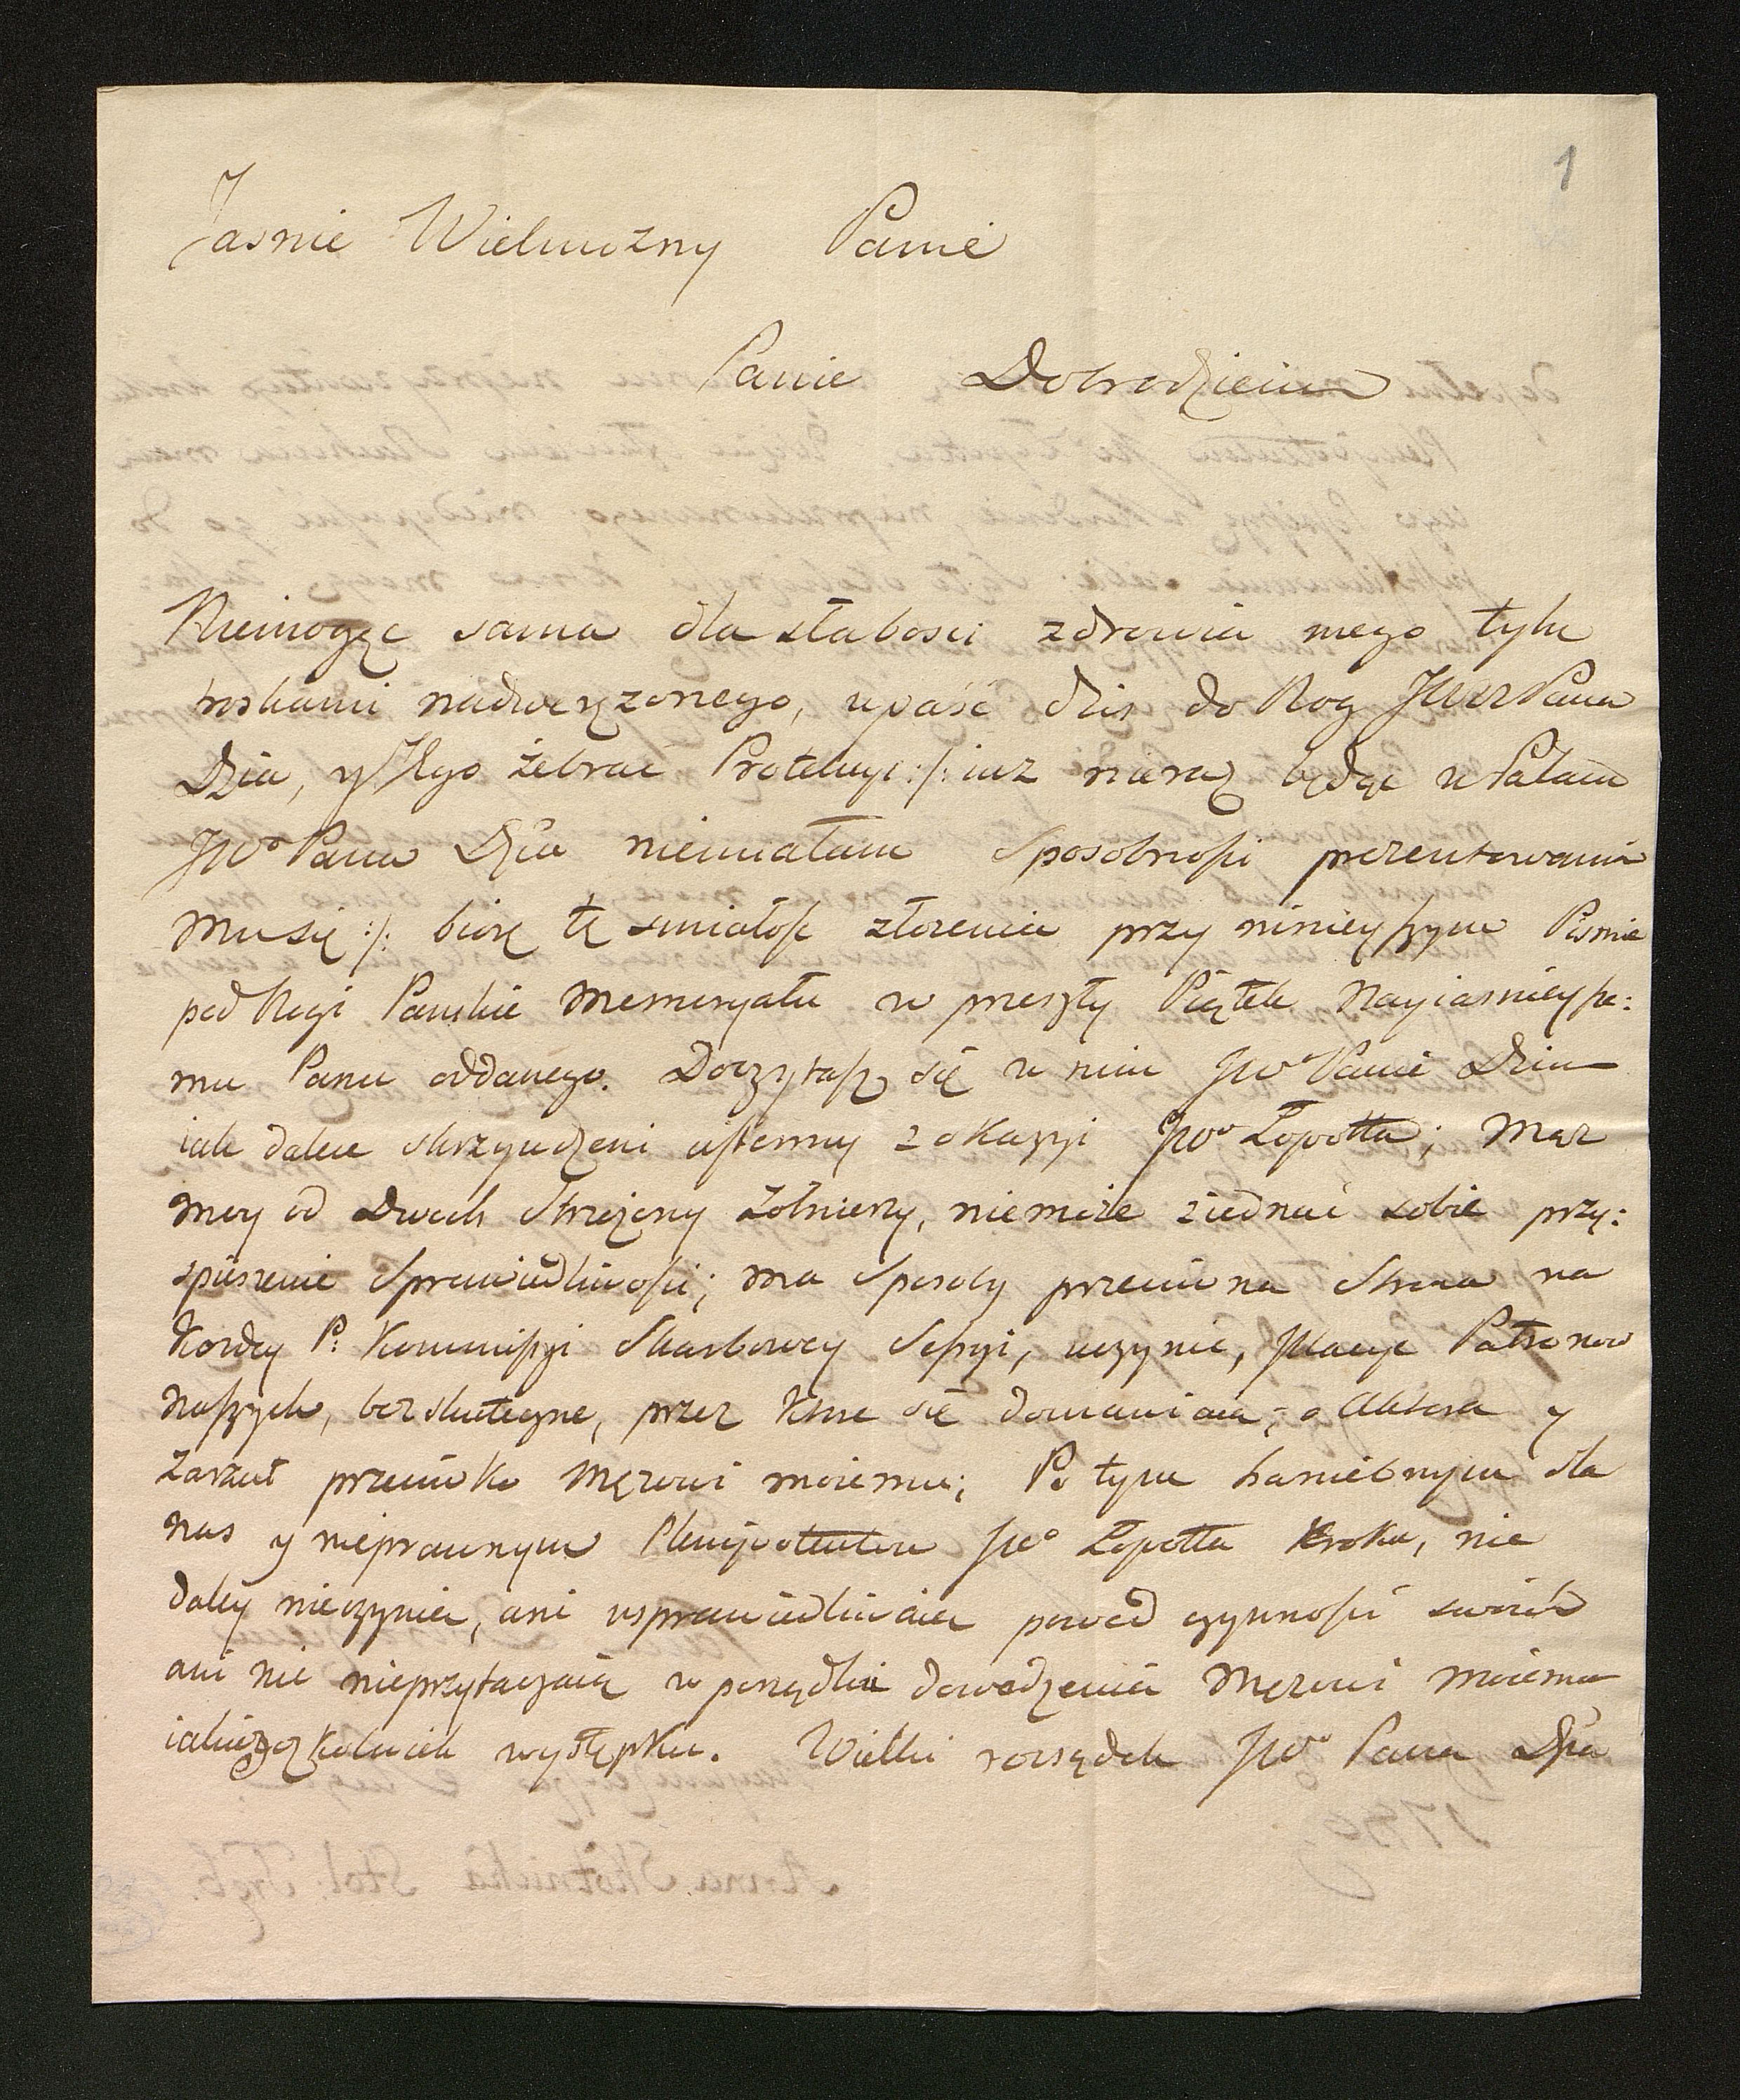 1
Jasnie Wielmozny Panie
Panie Dobrodzieiu
Niemogąc sama dla słabosci zdrowia mego tylu
troskami nadweręzonego, upaść dzis do Nog JWW Pana
Dzia, y Jego żebrać Protekcyi :/: iuz nieraz będąc w Pałacu
JWo Pana Dzia niemiałam Sposobnosci prezentowania
Mu się :/: biorę tę smiałosc złożenia przy ninieyszym Pismie
pod Nogi Panskie Memoryału w przeszły Piątek Nayiasnieysze:
mu Panu oddanego. Doczytasz się w nim JWo Panie Dziu
iak dalece skrzywdzeni iestesmy z okazyi JWo Łopotta; Mąz
moy od Dwoch Strzezony Zołnierzy, niemoże ziednać sobie przy:
spieszenie Sprawiedliwosci; ma Sposoby przeciwna Strona na
kozdey P: Kommissyi Skarbowey Sessyi, uczynić, Placye Patronow
naszych, bezskuteczne, przez ktore się domawiaią, o Aktora y
Zarzut przeciwko Męzowi moiemu; Po tym haniebnym dla
nas y nieprawnym Plenipotentow JWo Łopotta Kroku, nic
daley nieczynią, ani usprawiedliwiaią powod czynnosci swoich
ani nic nieprzytaczaią w porządku dowodzenia Męzowi Moiemu
iakiegozkolwiek występku. Wielki rozsądek JWo Pana Dzia